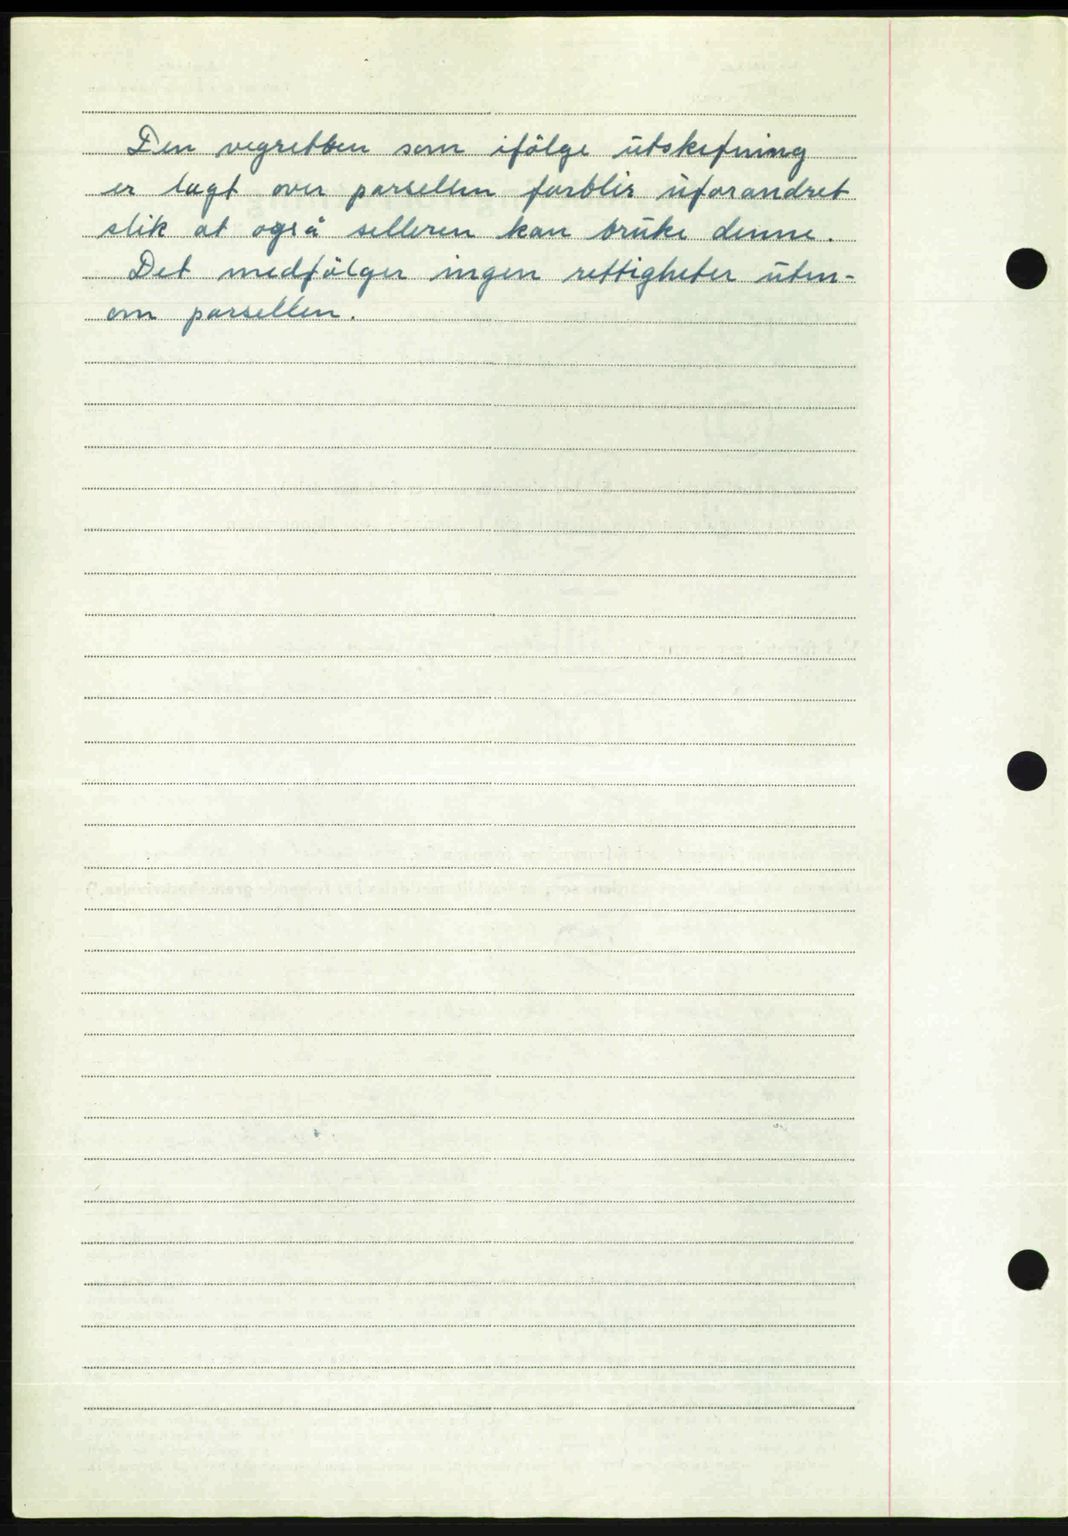 Den vegretten som ifölge utskifning
er lagt over parsellen forblir uforandret
slik at også selleren kan bruke denne.
Det medfölger ingen rettigheter uten-
om parsellen.